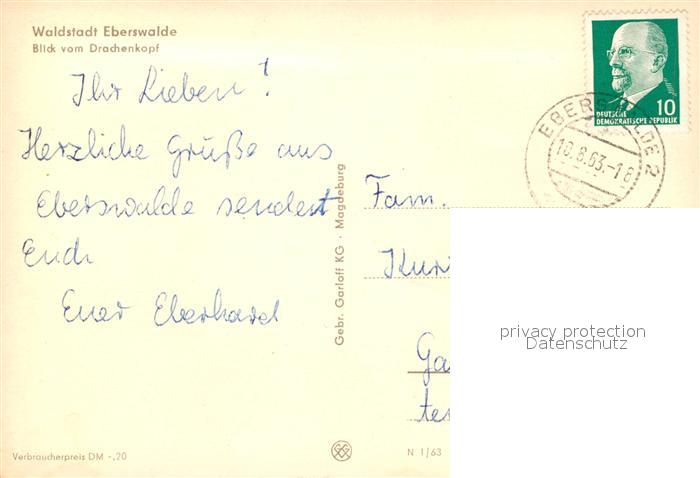 Waldstadt Eberswalde
Blick vom Drachenkopf
Ihr Lieben!
Herzliche Grüße aus
Eberswalde sendet
Euch
Euer Eberhard
Gebr. Garloff KG · Magdeburg
10
DEUTSCHE
DEMOKRATISCHE REPUBLIK
EBERSWALDE 2
10.8.63.-18
Fam.
privacy protection
Datenschutz
Verbraucherpreis DM -,20
N 1/63